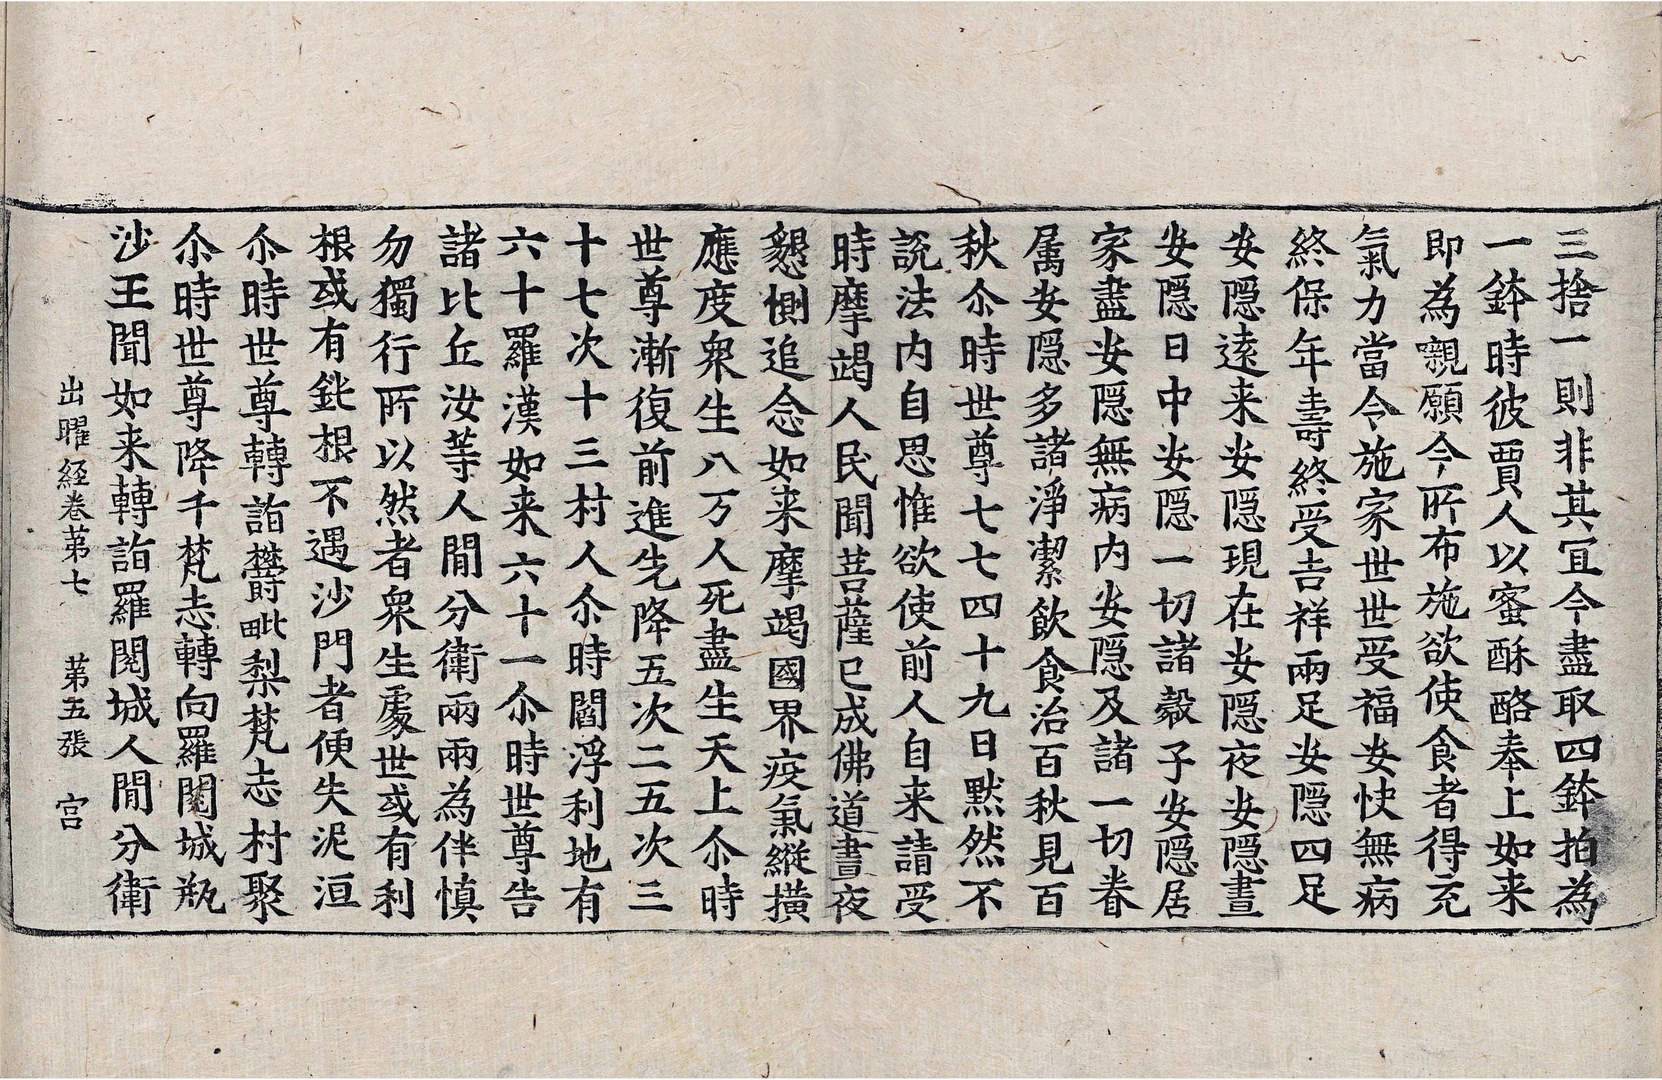 三捨一則非其冝今盡取四鉢拍為
一鉢時彼賈人以蜜酥酪奉上如来
即為嚫願今所布施欲使食者得充
氣力當令施家世世受福安快無病
終保年壽終受吉祥兩足安隱四足
安隱遠来安隱現在安隱夜安隱晝
安隱日中安隱一切諸穀子安隱居
家盡安隱無病内安隱及諸一切眷
属安隱多諸淨潔飲食治百秋見百
秋尒時世尊七七四十九日黙然不
說法内自思惟欲使前人自来請受
時摩竭人民聞菩薩已成佛道晝夜
懇惻追念如来摩竭國界疫氣縱横
應度衆生八万人死盡生天上尒時
世尊漸復前進先降五次二五次三
十七次十三村人尒時閻浮利地有
六十羅漢如来六十一尒時世尊告
諸比丘汝等人間分衛兩兩為伴慎
勿獨行所以然者衆生處世或有利
根或有鈍根不遇沙門者便失泥洹
尒時世尊轉詣欝毗梨梵志村聚
尒時世尊降千梵志轉向羅閱城瓶
沙王聞如来轉詣羅閱城人間分衛
出曜経卷第七 第五張 宫